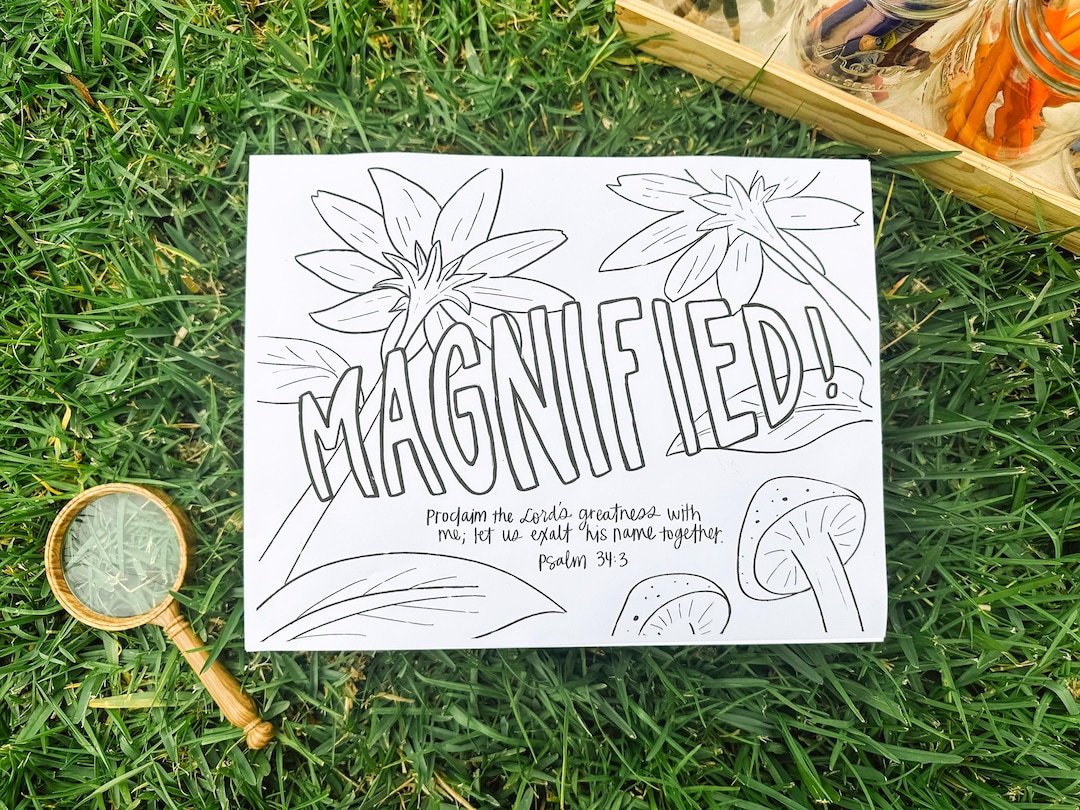 MAGNIFIED!
Proclaim the Lord's greatness with
me; let us exalt his name together.
Psalm 34:3